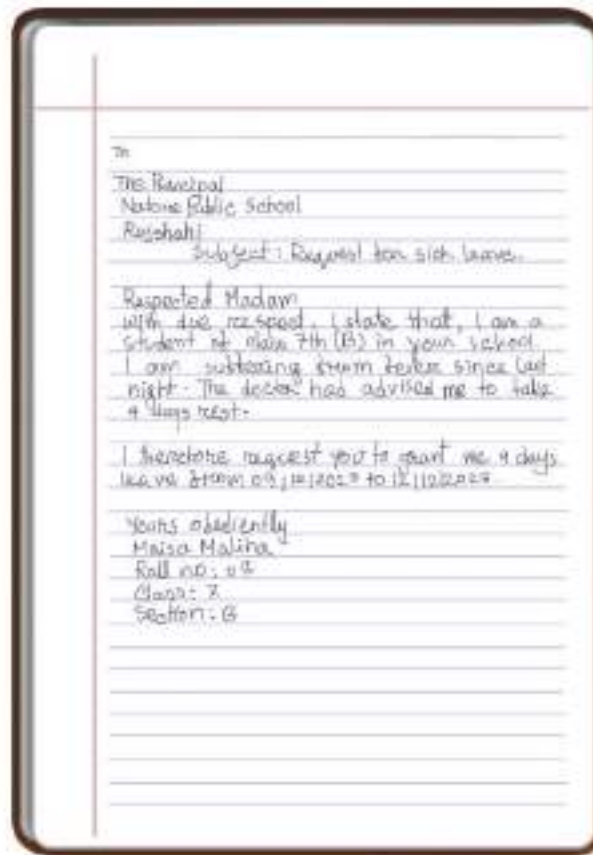 To
The Principal
Natore Public School
Rajshahi
Subject: Request for sick leave.
Respected Madam
with due respect, I state that, I am a
student of class 7th (B) in your school.
I am suffering from fever since last
night. The doctor had advised me to take
4 days rest.
I therefore request you to grant me 4 days
leave from 09/12/2023 to 12/12/2023
Yours obediently
Maisa Maliha
Roll no: 
Class: 7
Section: B